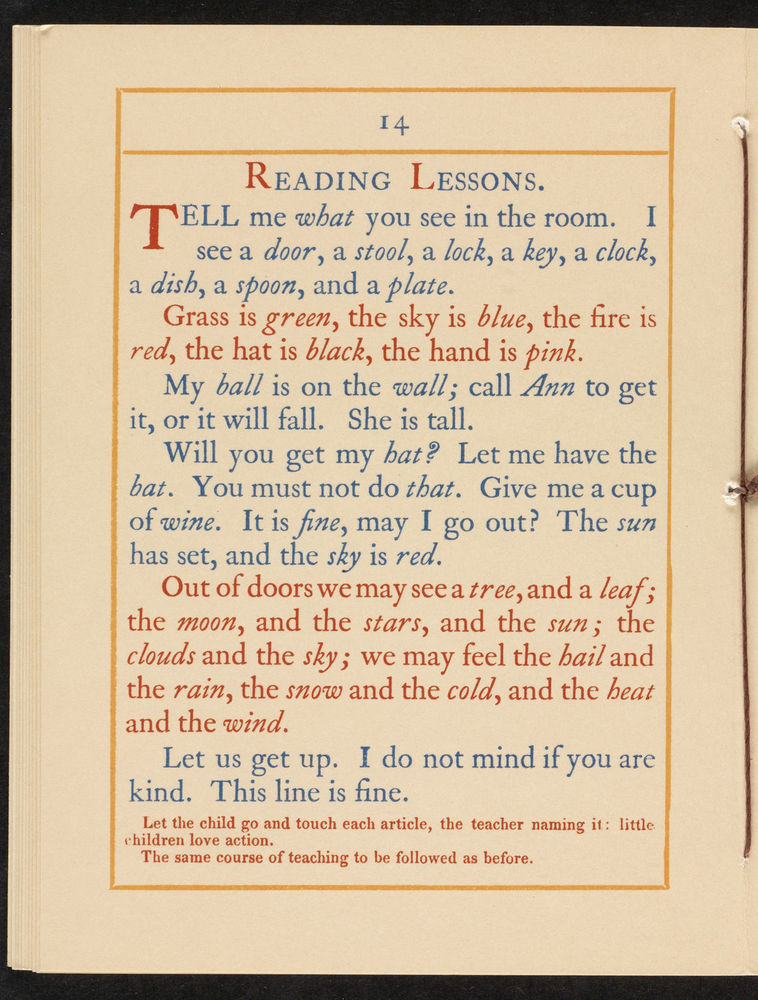 14
READING LESSONS.
TELL me what you see in the room. I
see a door, a stool, a lock, a key, a clock,
a dish, a spoon, and a plate.
Grass is green, the sky is blue, the fire is
red, the hat is black, the hand is pink.
My ball is on the wall; call Ann to get
it, or it will fall. She is tall.
Will you get my hat? Let me have the
bat. You must not do that. Give me a cup
of wine. It is fine, may I go out? The sun
has set, and the sky is red.
Out of doors we may see a tree, and a leaf;
the moon, and the stars, and the sun; the
clouds and the sky; we may feel the hail and
the rain, the snow and the cold, and the heat
and the wind.
Let us get up. I do not mind if you are
kind. This line is fine.
Let the child go and touch each article, the teacher naming it: little
children love action.
The same course of teaching to be followed as before.